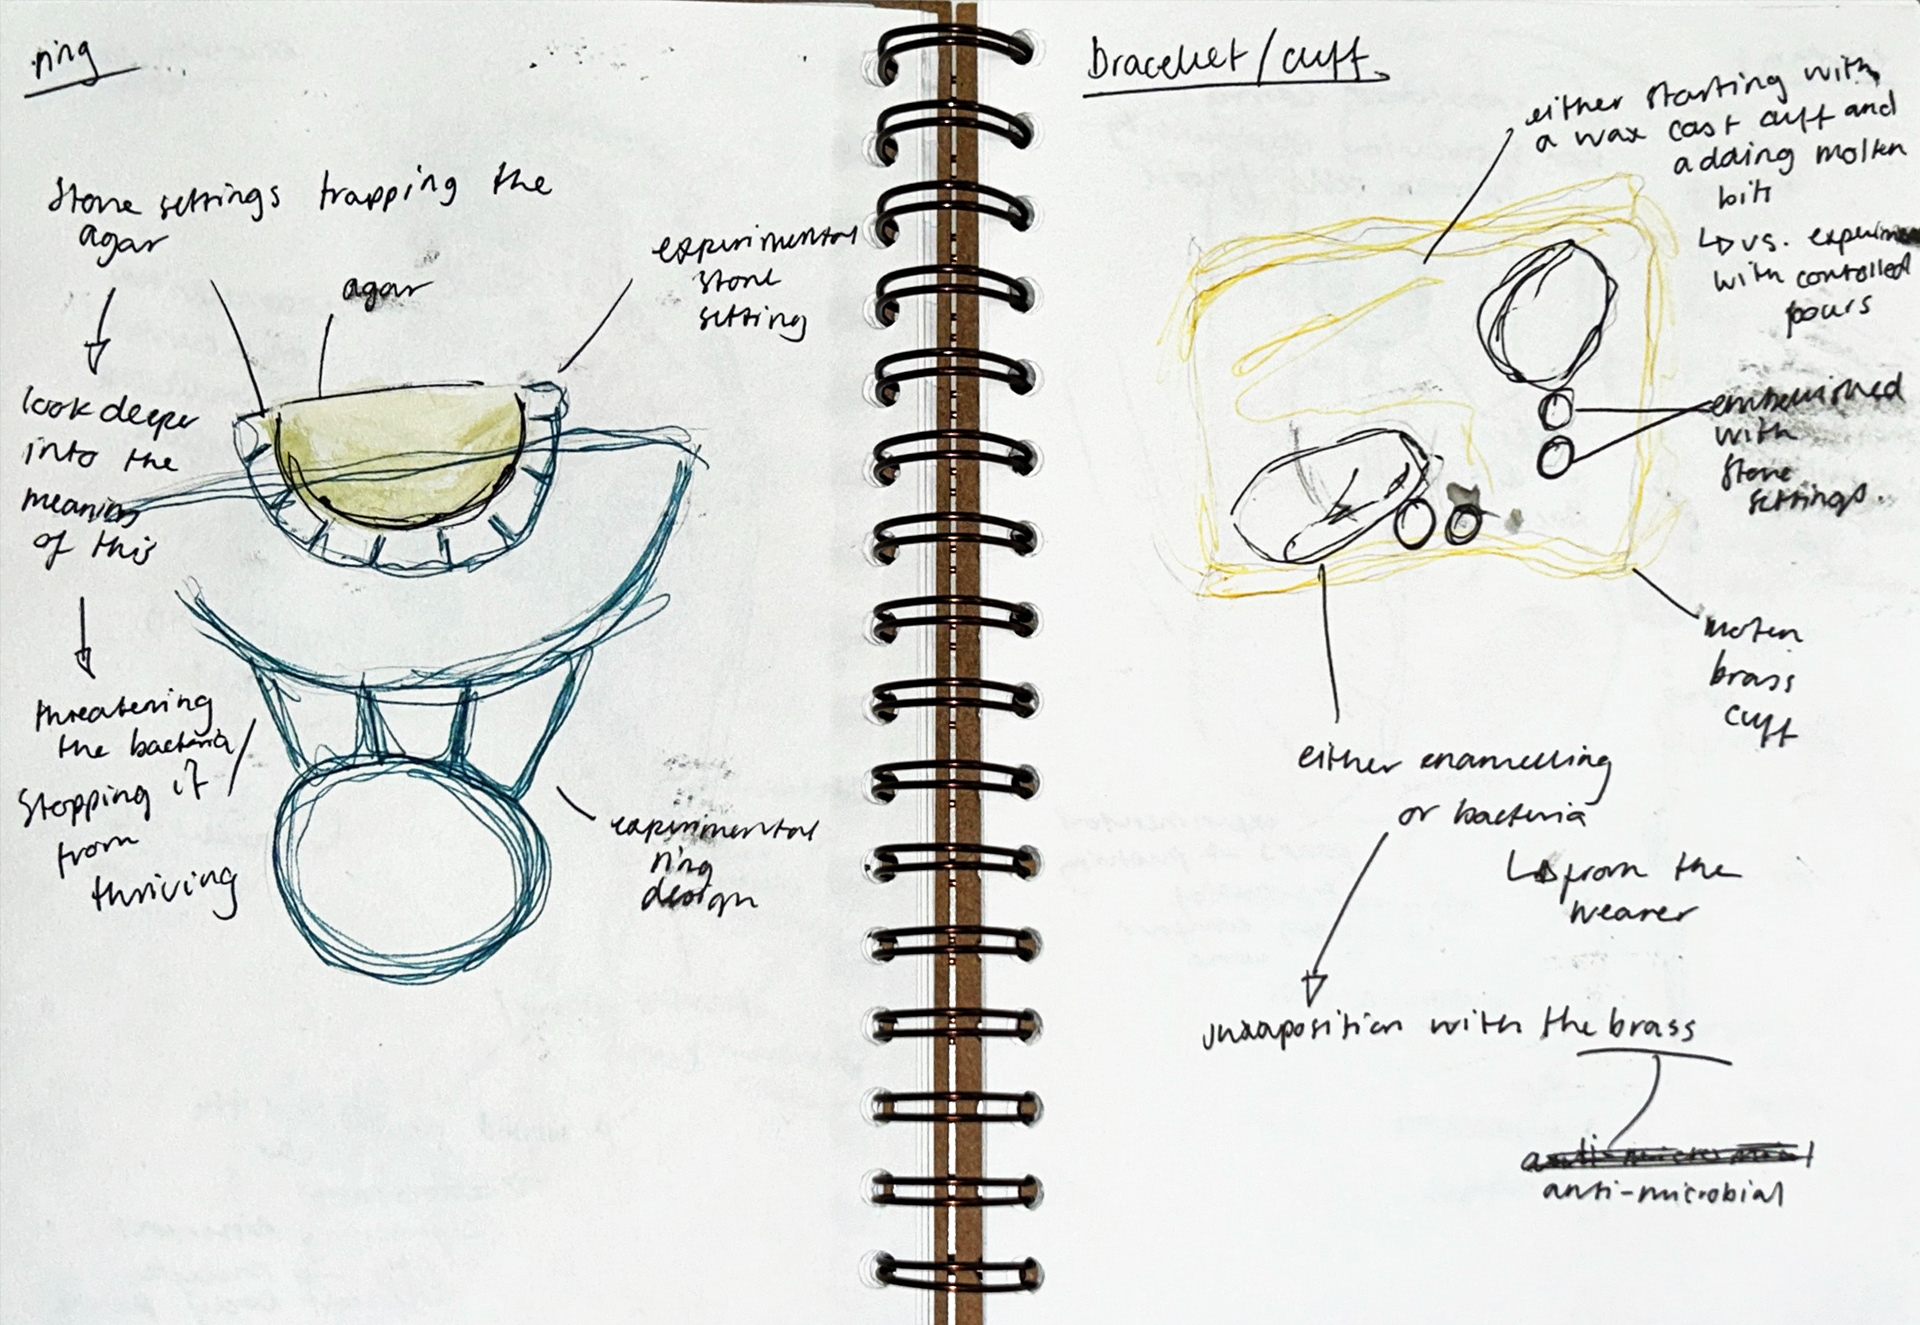 ring
Stone settings trapping the
agar
agar
experimental
stone
setting
look deeper
into the
meaning
of this
threatening
the bacteria/
Stopping it
from
thriving
experimental
ring
design
Bracelet/cuff
either starting with
a wax cast cuff and
adding molten
bits
vs. experiment
with controlled
pours
embellished
with
stone
settings.
molten
brass
cuff
either enamelling
or bacteria
from the
wearer
juxtaposition with the brass
anti-microbial